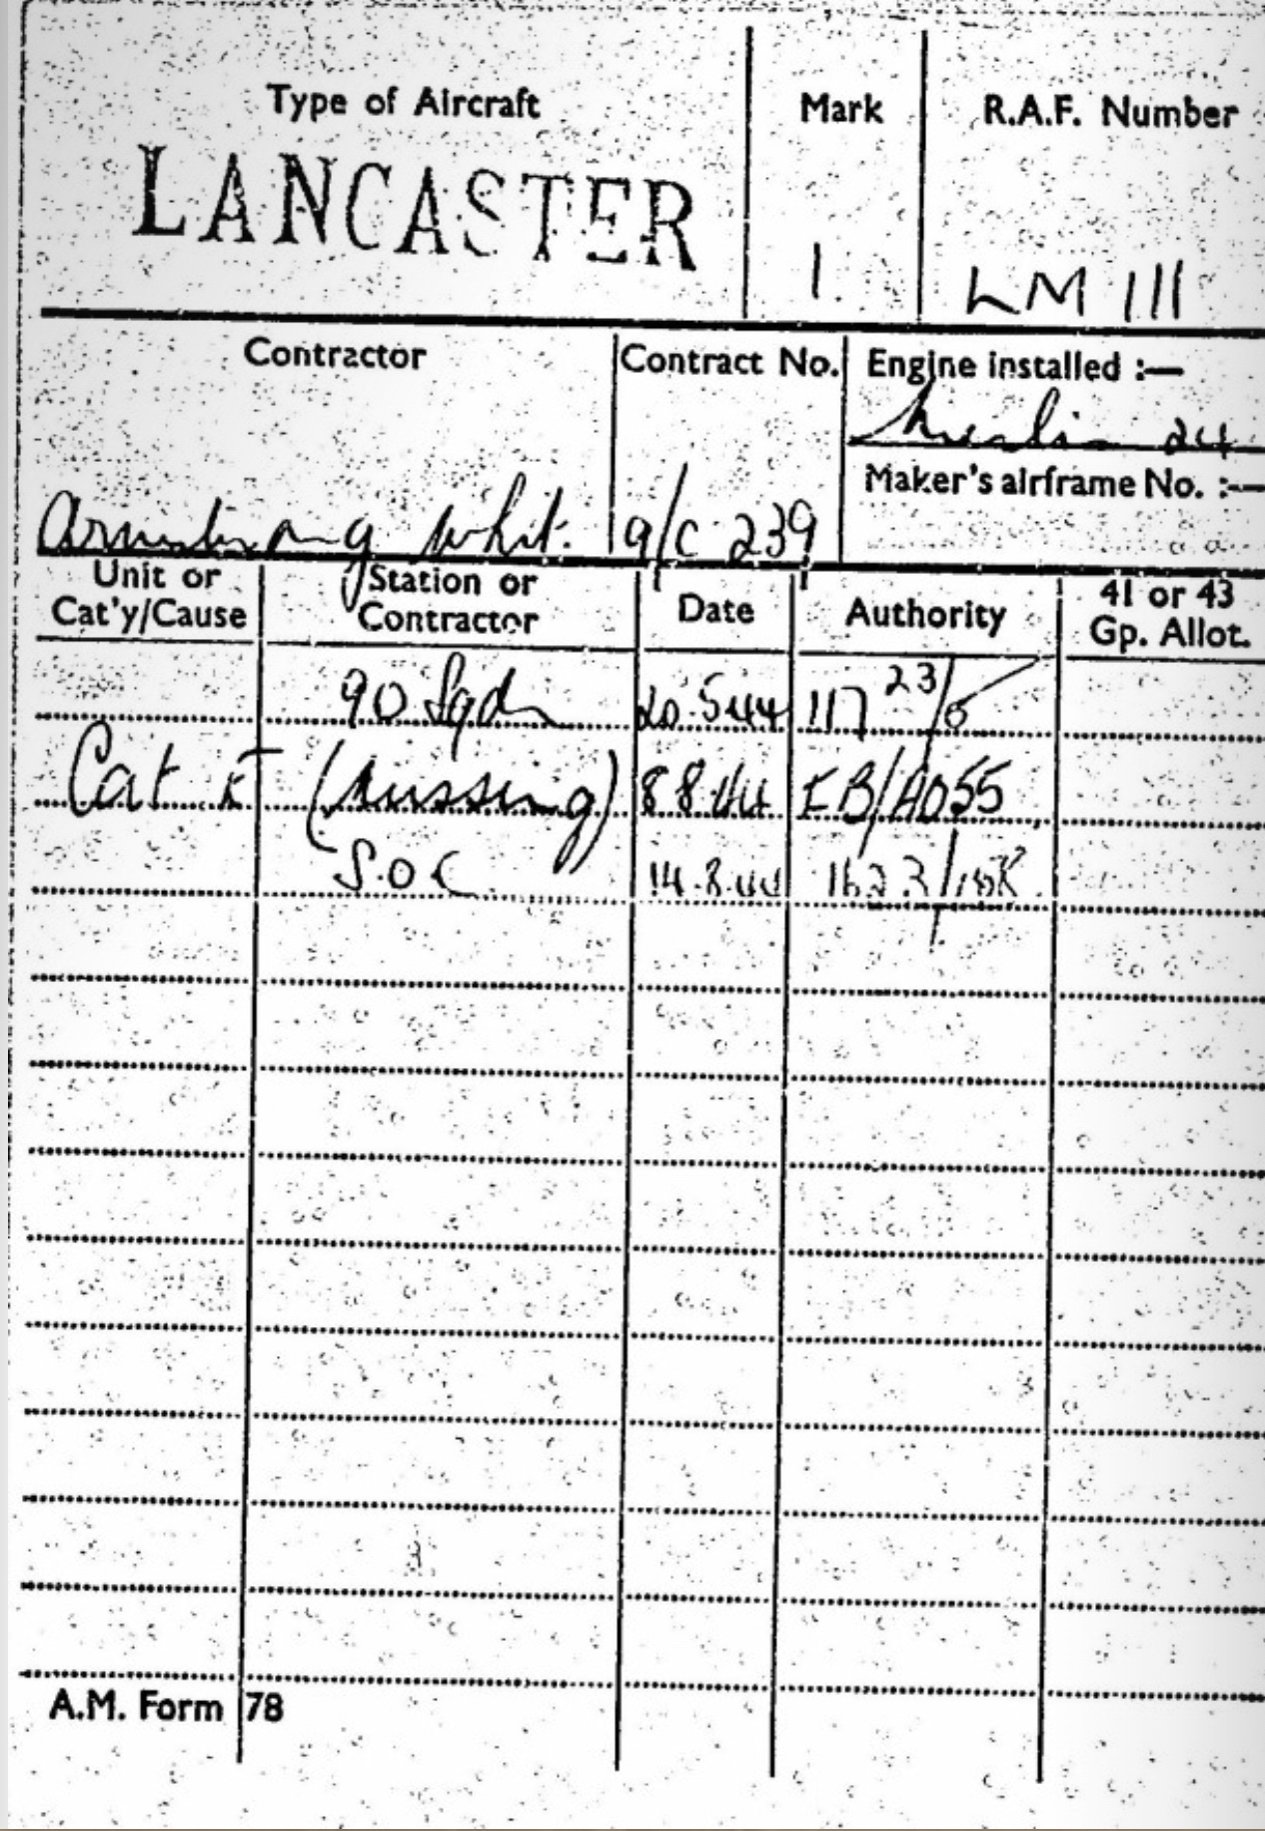 Type of Aircraft Mark R.A.F. Number
LANCASTER 1 LM 111
Contractor Contract No. Engine installed :—
Merlin 24
Maker's airframe No. :—
Armstrong Whit. a/c 239
Unit or Cat'y/Cause Station or Contractor Date Authority 41 or 43 Gp. Allot.
90 Sqdn 20.5.44 117 23/5
Cat E (Missing) 8.8.44 FB/A055
S.O.C 14.8.44
A.M. Form 78